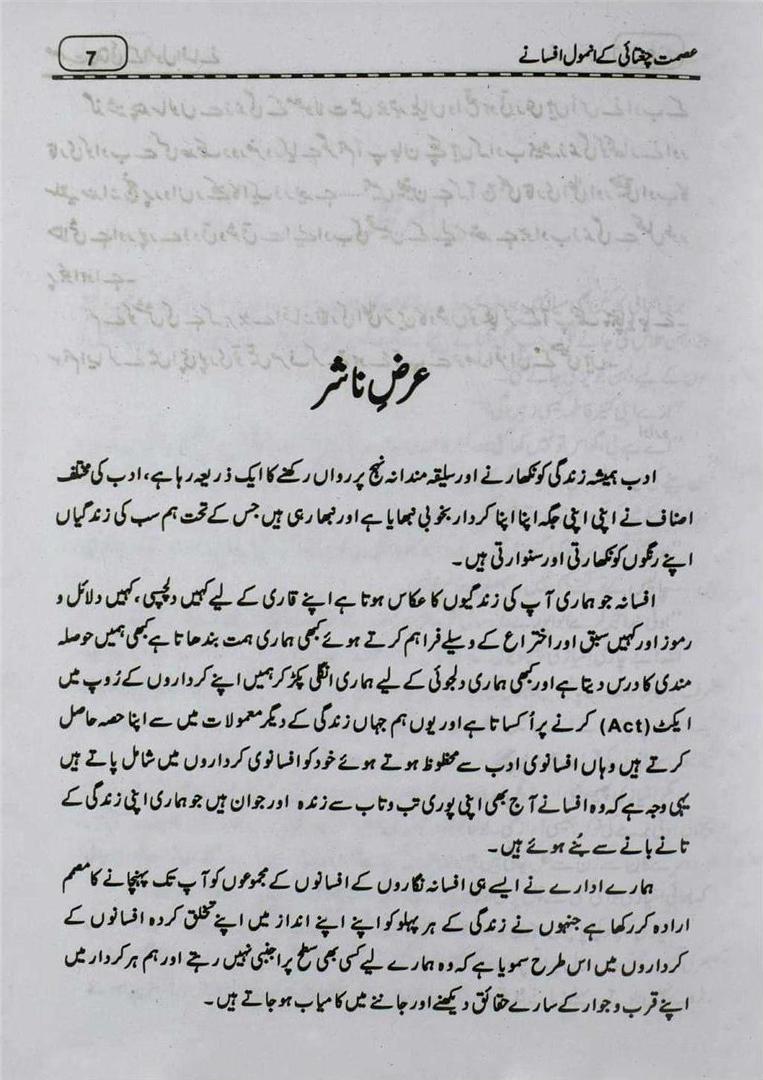 عصمت چغتائی کے انمول افسانے
7
عرضِ ناشر
ادب ہمیشہ زندگی کو نکھارنے اور سلیقہ مندانہ نہج پر رواں رکھنے کا ایک ذریعہ رہا ہے، ادب کی مختلف
اصناف نے اپنی اپنی جگہ اپنا اپنا کردار بخوبی نبھایا ہے اور نبھا رہی ہیں جس کے تحت ہم سب کی زندگیاں
اپنے رنگوں کو نکھارتی اور سنوارتی ہیں۔
افسانہ جو ہماری آپ کی زندگیوں کا عکاس ہوتا ہے اپنے قاری کے لیے کہیں دلچسپی، کہیں دلائل و
رموز اور کہیں سبق اور اختراع کے وسیلے فراہم کرتے ہوئے کبھی ہماری ہمت بندھاتا ہے کبھی ہمیں حوصلہ
مندی کا درس دیتا ہے اور کبھی ہماری دلجوئی کے لیے ہماری انگلی پکڑ کر ہمیں اپنے کرداروں کے رُوپ میں
ایکٹ (Act) کرنے پر اُکساتا ہے اور یوں ہم جہاں زندگی کے دیگر معمولات میں سے اپنا حصہ حاصل
کرتے ہیں وہاں افسانوی ادب سے محظوظ ہوتے ہوئے خود کو افسانوی کرداروں میں شامل پاتے ہیں
یہی وجہ ہے کہ وہ افسانے آج بھی اپنی پوری تب و تاب سے زندہ اور جوان ہیں جو ہماری اپنی زندگی کے
تانے بانے سے بُنے ہوئے ہیں۔
ہمارے ادارے نے ایسے ہی افسانہ نگاروں کے افسانوں کے مجموعوں کو آپ تک پہنچانے کا مصمم
ارادہ کر رکھا ہے جنہوں نے زندگی کے ہر پہلو کو اپنے اپنے انداز میں اپنے تخلق کردہ افسانوں کے
کرداروں میں اس طرح سمویا ہے کہ وہ ہمارے لیے کسی بھی سطح پر اجنبی نہیں رہتے اور ہم ہر کردار میں
اپنے قرب و جوار کے سارے حقائق دیکھنے اور جاننے میں کامیاب ہو جاتے ہیں۔